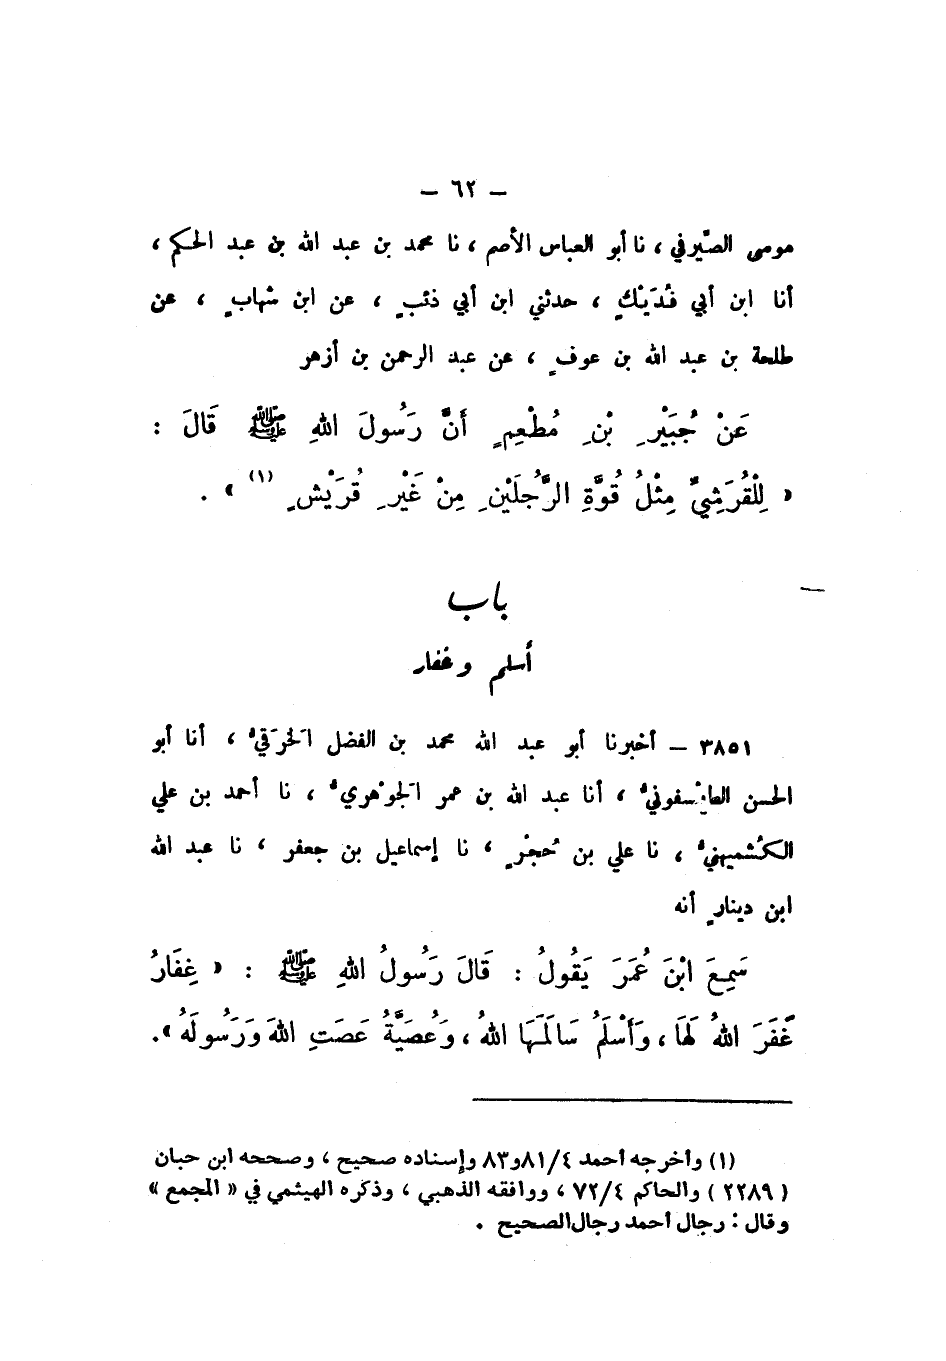 – ٦٢ –
موسى الصَّيرفي ، نا أبو العباس الأصم ، نا محمد بن عبد الله بن عبد الحكم ،
أنا ابن أبي فُدَيْكٍ ، حدثني ابن أبي ذئبٍ ، عن ابن شهابٍ ، عن
طلحة بن عبد الله بن عوفٍ ، عن عبد الرحمن بن أزهر
عَنْ جُبَيْرِ بْنِ مُطْعِمٍ أَنَّ رَسُولَ اللهِ ﷺ قَالَ :
« لِلْقُرَشِيِّ مِثْلُ قُوَّةِ الرَّجُلَيْنِ مِنْ غَيْرِ قُرَيْشٍ (١) » .
باب
أسلم وغفار
٣٨٥١ – أخبرنا أبو عبد الله محمد بن الفضل الخَرَقيُّ ، أنا أبو
الحسن الطيْسفونيُّ ، أنا عبد الله بن عمر الجَوْهَريُّ ، نا أحمد بن علي
الكُشميهنيُّ ، نا علي بن حُجْرٍ ، نا إسماعيل بن جعفر ، نا عبد الله
ابن دينارٍ أنه
سَمِعَ ابْنَ عُمَرَ يَقُولُ : قَالَ رَسُولُ اللهِ ﷺ : « غِفَارُ
غَفَرَ اللهُ لَهَا ، وَأَسْلَمُ سَالَمَهَا اللهُ ، وَعُصَيَّةُ عَصَتِ اللهَ وَرَسُولَهُ » .
(١) وأخرجه أحمد ٨١/٤و٨٣ وإسناده صحيح ، وصححه ابن حبان
( ٢٢٨٩ ) والحاكم ٧٢/٤ ، ووافقه الذهبي ، وذكره الهيثمي في « المجمع »
وقال : رجال أحمد رجال الصحيح .